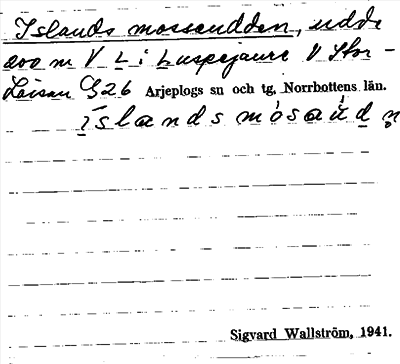 Islands mossudden, udde
200 m V L i Luspejaure V Stor-
Laisan G26 Arjeplogs sn och tg, Norrbottens län.
Sigvard Wallström, 1941.